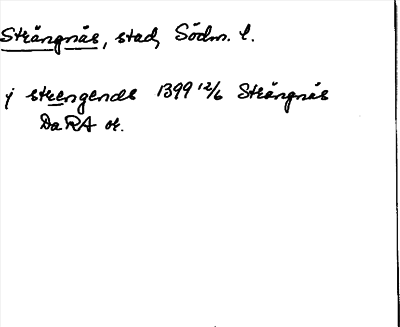 Strängnäs, stad, Södm. l.
j strengenæs 1399 12/6 Strängnäs
DaRA or.